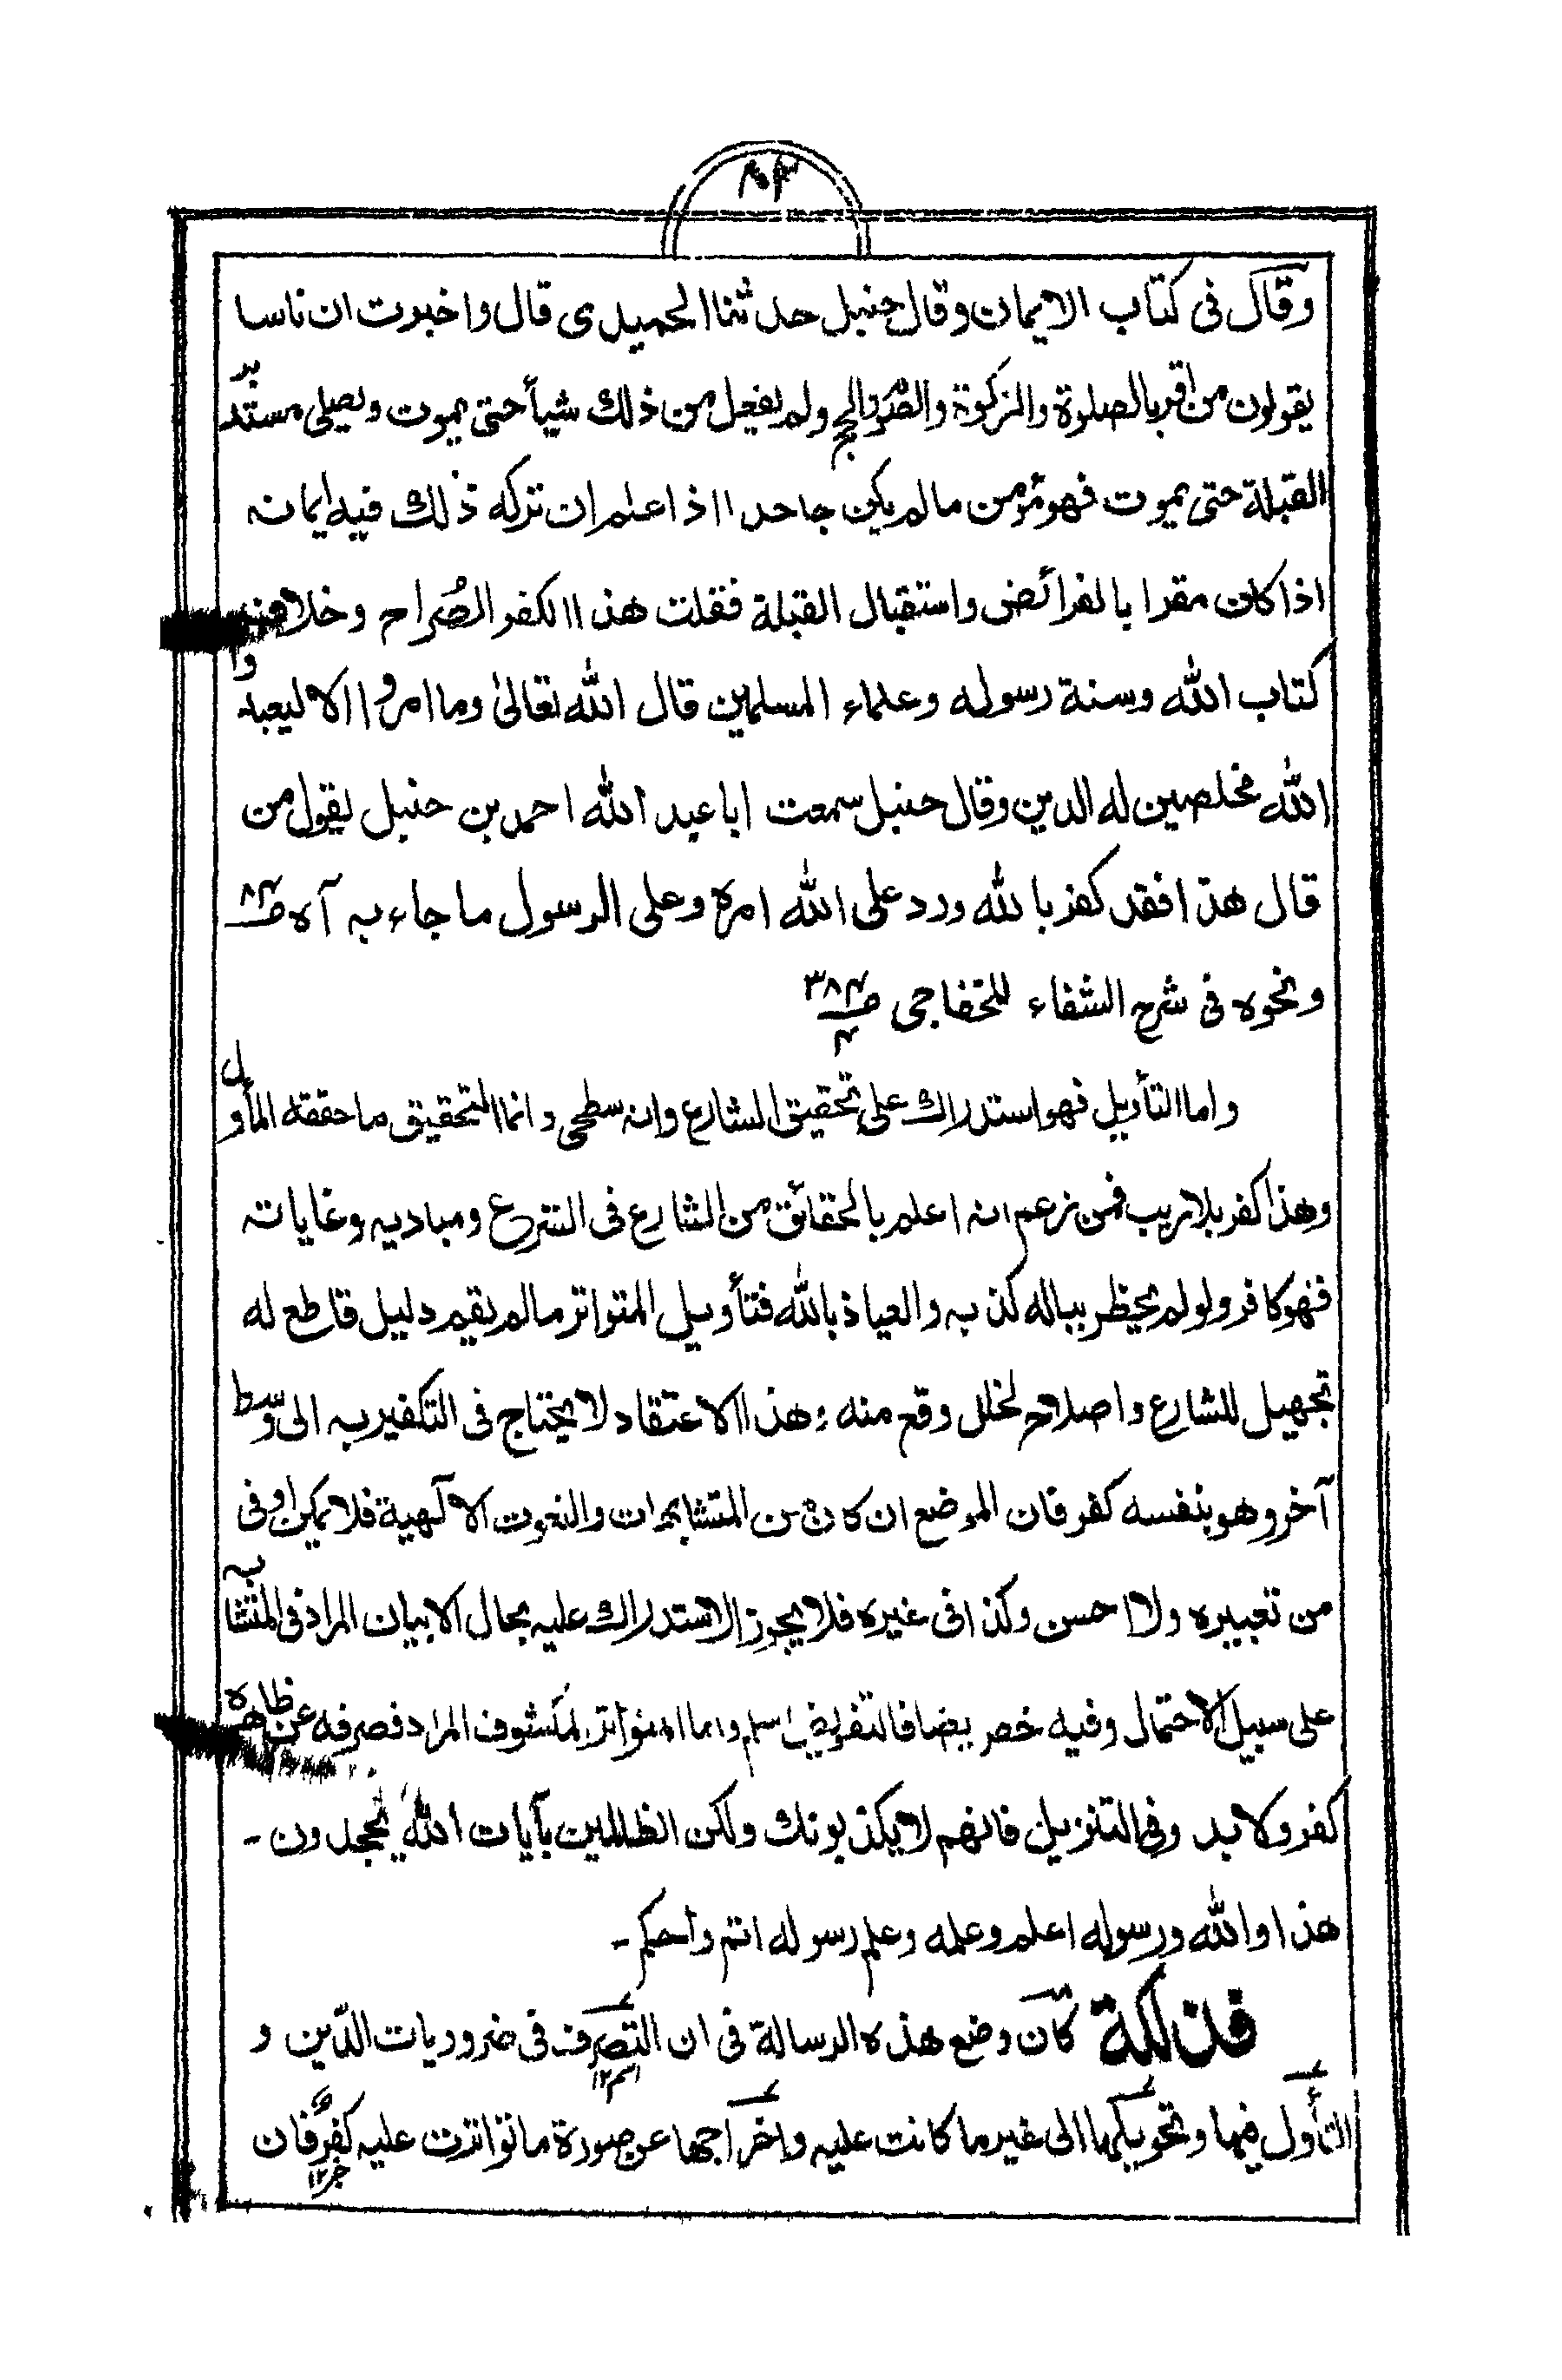 وقال فى كتاب الايمان وقال حنبل حدثنا الحميدى قال واخبرت ان ناسا
يقولون من اقر بالصلوة والزكوة والصوم والحج ولم يفعل من ذلك شيأ حتى يموت ويصلى مستدبر
القبلة حتى يموت فهو مؤمن مالم يكن جاحدا اذا علم ان تركه ذلك فيه ايمانه
اذا كان مقرا بالفرائض واستقبال القبلة فقلت هذا الكفر الصُراح وخلاف
كتاب الله وسنة رسوله وعلماء المسلمين قال الله تعالىٰ وما امروا الا ليعبدوا
الله مخلصين له الدين وقال حنبل سمعت ابا عبد الله احمد بن حنبل يقول من
قال هذا فقد كفر بالله ورد على الله امره وعلى الرسول ما جاء به آه
ونحوه فى شرح الشفاء للخفاجى
واما التأويل فهو استدراك على تحقيق الشارع وانه سطحى وانما التحقيق ما حققه المأول
وهذا كفر بلا ريب فمن زعم انه اعلم بالحقائق من الشارع فى الشرع ومباديه وغاياته
فهو كافر ولو لم يخطر بباله كذبه والعياذ بالله فتأويل المتواتر مالم يقيم دليل قاطع له
تجهيل للشارع واصلاح لخلل وقع منه وهذا الاعتقاد لا يحتاج فى التكفير به الى وسط
آخر وهو بنفسه كفر فان الموضع ان كان من المتشابهات والنعوت الآلهية فلا يمكن اوفى
من تعبيره ولا احسن وكذا فى غيره فلا يجوز الاستدراك عليه بحال الا بيان المراد فى المتشابه
على سبيل الاحتمال وفيه خطر ايضا فالتفويض اسلم واما المتواتر لمكشوف المراد فصرفه عن ظاهره
كفر ولا بد وفى التنزيل فانهم لا يكذبونك ولكن الظالمين بآيات الله يجحدون -
هذا والله ورسوله اعلم وعلمه وعلم رسوله اتم واحكم -
فذلكة كان وضع هذه الرسالة فى ان التصرف فى ضروريات الدّين و
اسم ١٢
التأول فيها وتحويلها الى غير ما كانت عليه واخراجها عن صورة ما تواترت عليه كفرٌ فان
خبر ١٢